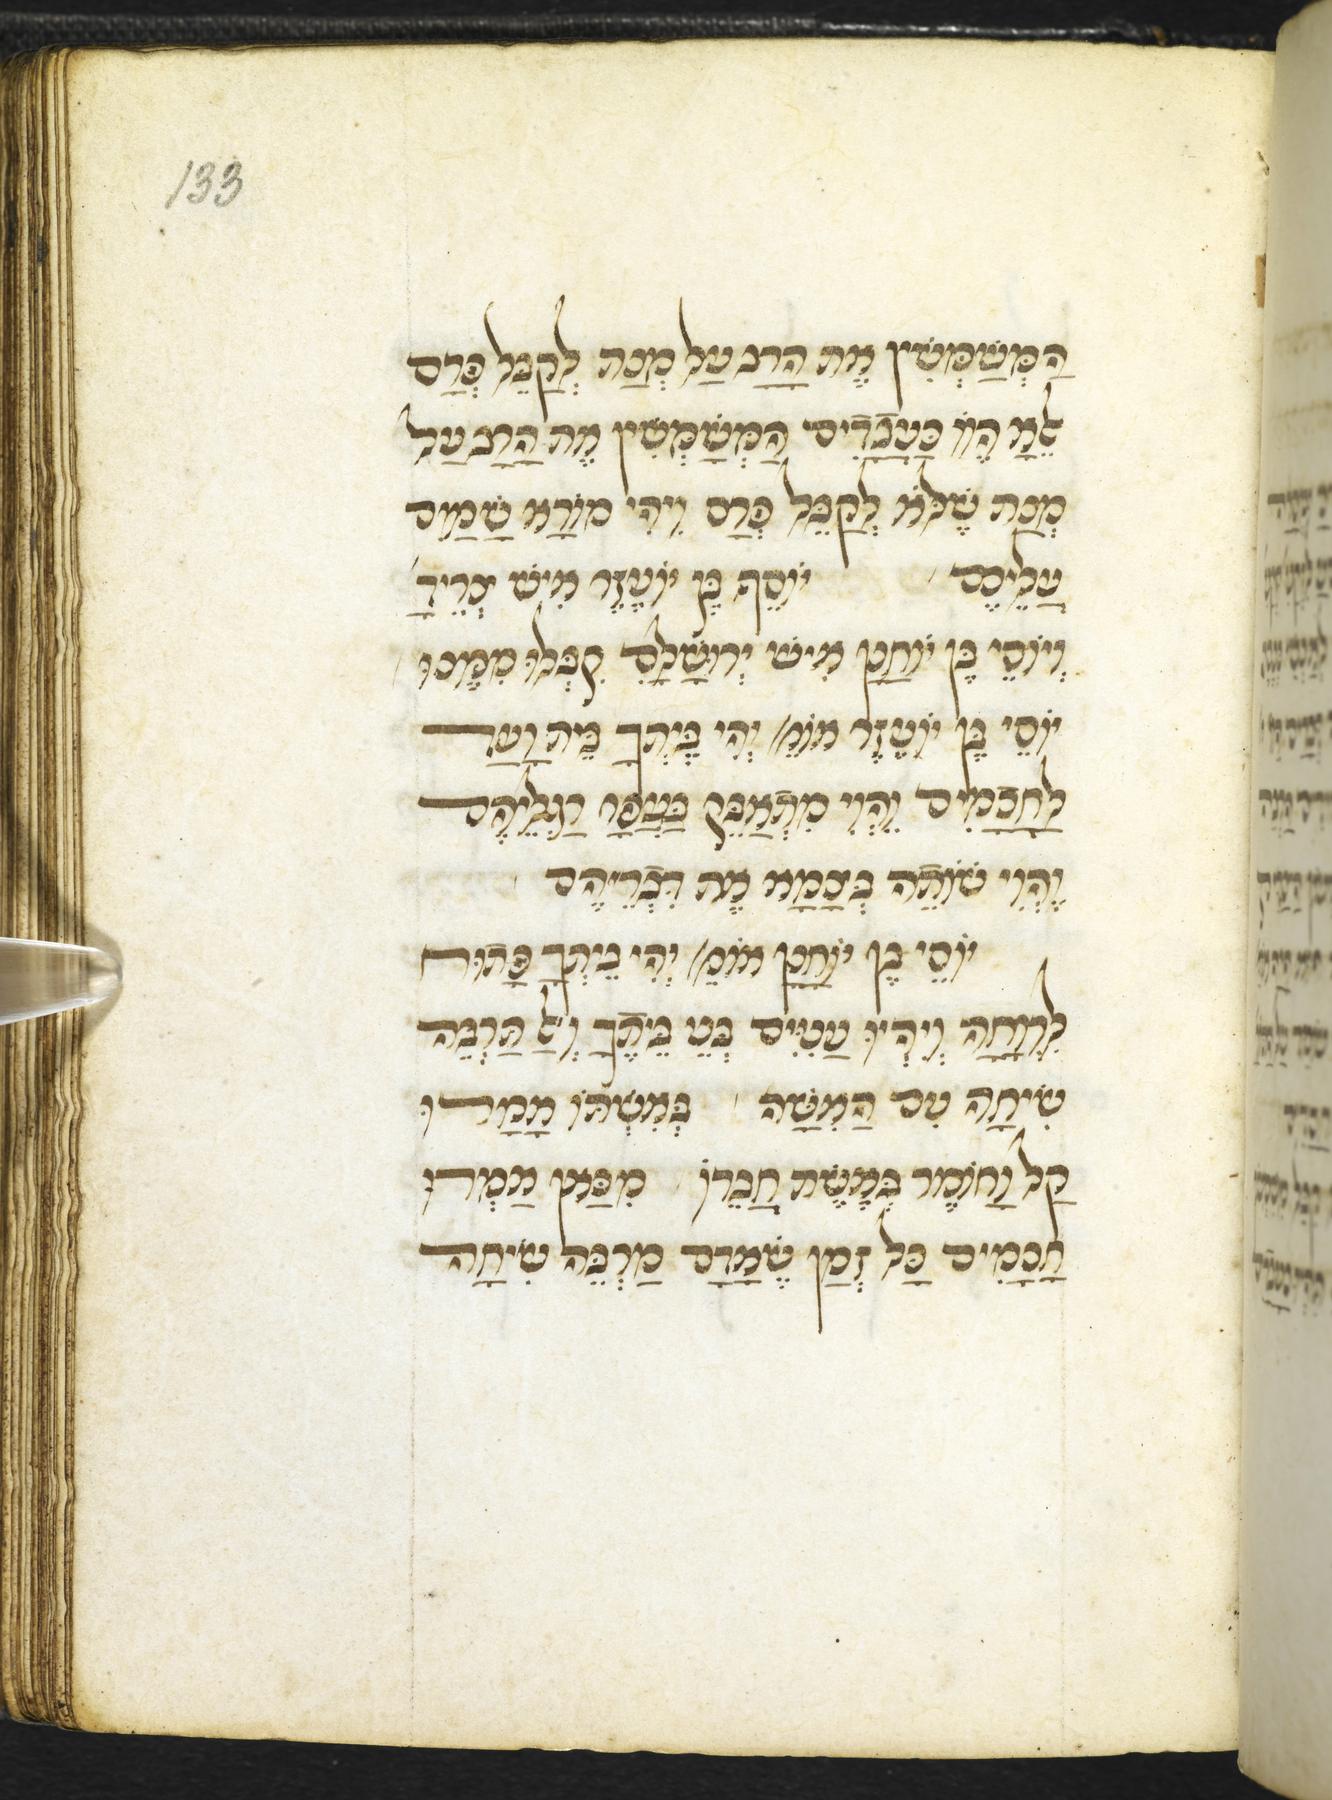 133
הַמְּשַׁמְּשִׁין אֶת הָרַב עַל מְנַת לְקַבֵּל פְּרַס
אֶלָּא הֱיוּ כַּעֲבָדִים הַמְּשַׁמְּשִׁין אֶת הָרַב עַל
מְנַת שֶׁלֹּא לְקַבֵּל פְּרַס וִיהִי מוֹרָא שָׁמַיִם
עֲלֵיכֶם יוֹסֵף בֶּן יוֹעֶזֶר אִישׁ צְרֵידָ
וְיוֹסֵי בֶּן יוֹחָנָן אִישׁ יְרוּשָׁלַםִ קִבְּלוּ מִמֶּנּוּ
יוֹסֵי בֶּן יוֹעֶזֶר אוֹמֵ׳ יְהִי בֵּיתְךָ בֵּית וַעַד
לַחֲכָמִים וֶהֱוִי מִתְאַבֵּק בַּעֲפַר רַגְלֵיהֶם
וֶהֱוִי שׁוֹתֶה בְּצָמָא אֶת דִּבְרֵיהֶם
יוֹסֵי בֶּן יוֹחָנָן אוֹמֵ׳ יְהִי בֵיתְךָ פָּתוּחַ
לִרְוָחָה וְיִהְיוּ עֲנִיִּים בְּנֵי בֵיתֶךָ וְאַל תַּרְבֶּה
שִׂיחָה עִם הָאִשָּׁה בְּאִשְׁתּוֹ אָמָרוּ
קַל וָחוֹמֶר בְּאֵשֶׁת חֲבֵרוֹ מִכַּאן אָמְרוּ
חֲכָמִים כָּל זְמַן שֶׁאָדָם מַרְבֶּה שִׂיחָה